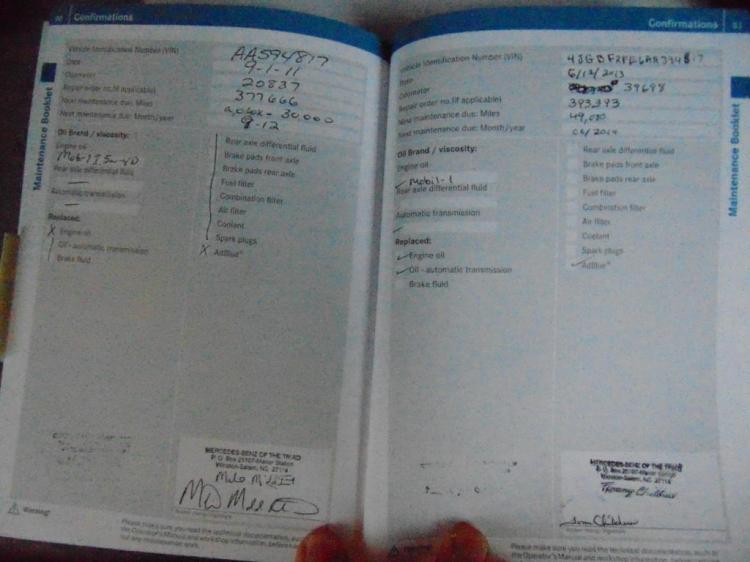 Confirmations
Vehicle Identification Number (VIN) AA594877
Date 9-1-11
Odometer 20837
Repair order no. (if applicable) 377666
Next maintenance due: Miles 30,000
Next maintenance due: Month/year 9-12
Oil Brand / viscosity:
Engine oil
Mobil 1
Rear axle differential fluid
Automatic transmission
Replaced:
X Engine oil
Oil - automatic transmission
Brake fluid
Rear axle differential fluid
Brake pads front axle
Brake pads rear axle
Fuel filter
Combination filter
Air filter
Coolant
Spark plugs
X AdBlue®
MERCEDES-BENZ OF THE TRIAD
P. O. Box 25107-Manor Station
Winston-Salem, NC 27114
Warning!
Please make sure you read the technical documentation, such
the Operator's Manual and workshop information, before
out any maintenance work.
Maintenance Booklet
Confirmations
Vehicle Identification Number (VIN)
Date 6/12/2013
Odometer 39698
Repair order no. (if applicable) 393393
Next maintenance due: Miles
Next maintenance due: Month/year 06/2014
Oil Brand / viscosity:
Engine oil
Mobil-1
Rear axle differential fluid
Automatic transmission
Replaced:
Engine oil
Oil - automatic transmission
Brake fluid
Rear axle differential fluid
Brake pads front axle
Brake pads rear axle
Fuel filter
Combination filter
Air filter
Coolant
Spark plugs
AdBlue®
MERCEDES-BENZ OF THE TRIAD
P. O. Box 25107-Manor Station
Winston-Salem, NC 27114
Please make sure you read the technical documentation, such as
the Operator's Manual and workshop information, before
Maintenance Booklet